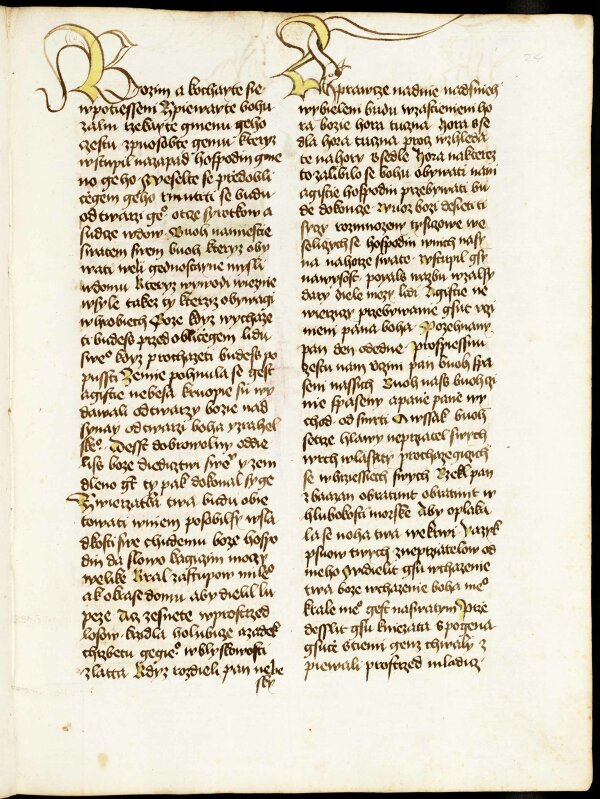 Bozim a kochayte sie
wpotiessem Spiewayte bohu
zalm rzekayte gmenu geho
czestu zpuosobte gemu kteryz
wstupil nazapad hospodin gme
no geho Weselte se przedobli
czegem geho
od twarzi geho otcze syrotkow a
sudcze wdow Buoh namiestie
swatem swem buoh kteryz oby
wati weli gednostayne mysli
wdomu kteryz wywodi wieznie
wsyle takez ty kteryz obywagi
whrobiech Boze kdyz wychaze
ti budess przed obliczegem lidu
sweho kdyz prochazeti budess po
pussti Zemie pohnula se gest
agistie nebesa kruopie su wy
dawali od twarzy bozie nad
synay od twarzi boha yzrahel
skeho Desst dobrowolny oddie
liss boze diedicztwi sweho y zem
dleno gest ty pak dokonal sy ge
Zwierzatka twa budu obie
towati wniem posobilsy wsla
dkosti swe chudemu boze hospo
din da slowo kagiczim moczy
welike Kral zastupow mileho
ak okrase domu aby dielil lu
peze Acz zesnete wprostrzed
losow krzidla holubicze azadek
chrzbetu gegieho wblyskawosti
zlatta Kdyz rozdieli pan nebe
sky
zsprawcze nadnie nadsnieh
wybieleni budu wzastienieni ho
ra bozie hora tuczna Hora sse
dla hora tuczna procz wzhleda
te nahory ssedle Hora nakterez
to zalibilo se bohu obywati nani
agistie hospodin przebywati bu
de dokoncze Wuoz bozi deseti ti
syczy rozmnozeny tysiczowe we
selicych se hospodin wnich nasy
na nahorze swate Wstupil gsy
nawysost powals wazbu wzalsy
dary diele mezy lidi Agistie ne
wierziczy przebywanie gsuc wzi
meni pana boha Pozehnany
pan den ode dne Prospiessnu
czestu nam uczini pan buoh spa
seni nassich Buoh nass buoh czi
nie spaseny a panie panie wy
chod od smrti A wssak buoh
setrze hlawy neprzatel swych
wrch wlasaty prochazegiczich
se whrziessiech swych Rzekl pan
zbazan obratim obratim w
hlubokosti morske Aby oplaka
la se noha twa wekrwi Yazyk
psuow twych zneprzatelow od
nieho Widieli gsu wchazenie
twa boze wchazenie boha meho
krale meho genz gest naswatem Prze
dessli gsu kniezata spogena
gsucze stiemi genz chwaly z
piewali prostrzed mladicz
24